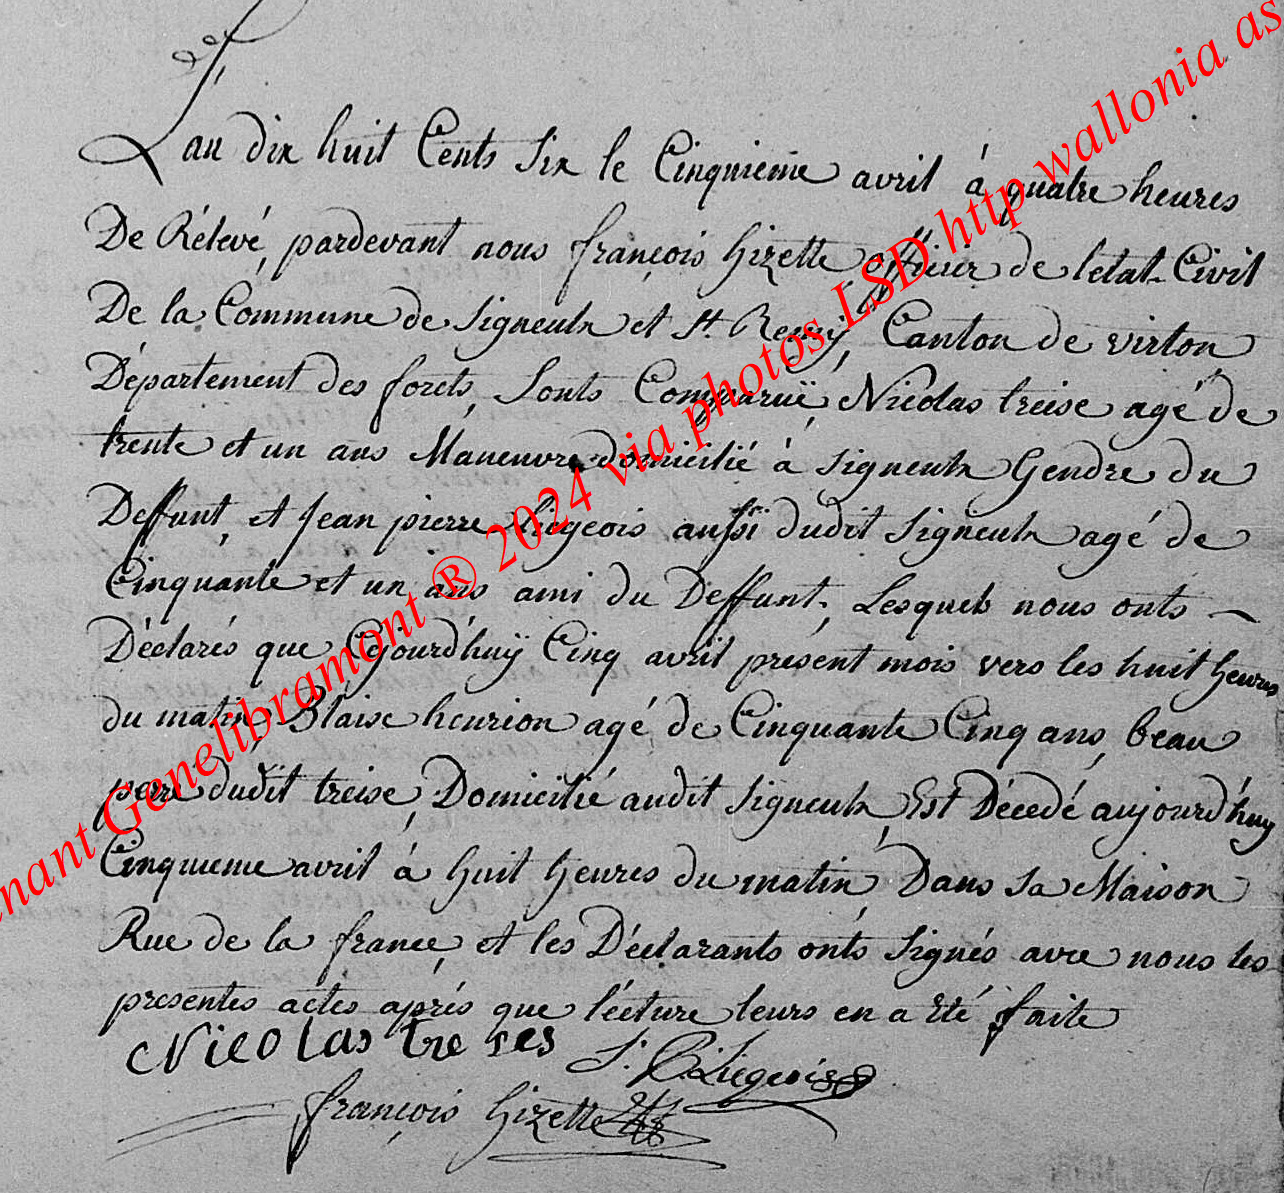 L'an dix huit Cents Six le Cinquieme avril à quatre heures
De Rélevé, pardevant nous françois Gizette officier de letat Civil
De la Commune de Signeulx et St. Remÿ, Canton de virton
Département des forets, Sonts Comparuë, Nicolas treise agé de
trente et un ans Maneuvre domicilié à Signeulx Gendre du
Deffunt, et Jean pierre Liégeois aussi dudit Signeulx agé de
Cinquante et un ans ami du Deffunt, Lesquels nous onts
Déclarés que Cejourd'huÿ Cinq avril présent mois vers les huit heures
du matin, Blaise henrion agé de Cinquante Cinq ans, beau
pere dudit treise, Domicilié audit Signeulx, Est Décedé aujourd'huy
Cinquieme avril à huit heures du matin, Dans sa Maison
Rue de la france, et les Déclarants onts Signés avec nous les
presentes actes aprés que lécture leurs en a Eté faite
Nicolas treses J. P. Liegeois
françois Gizette
nant Genelibramont ® 2024 via photos LSD http wallonia as